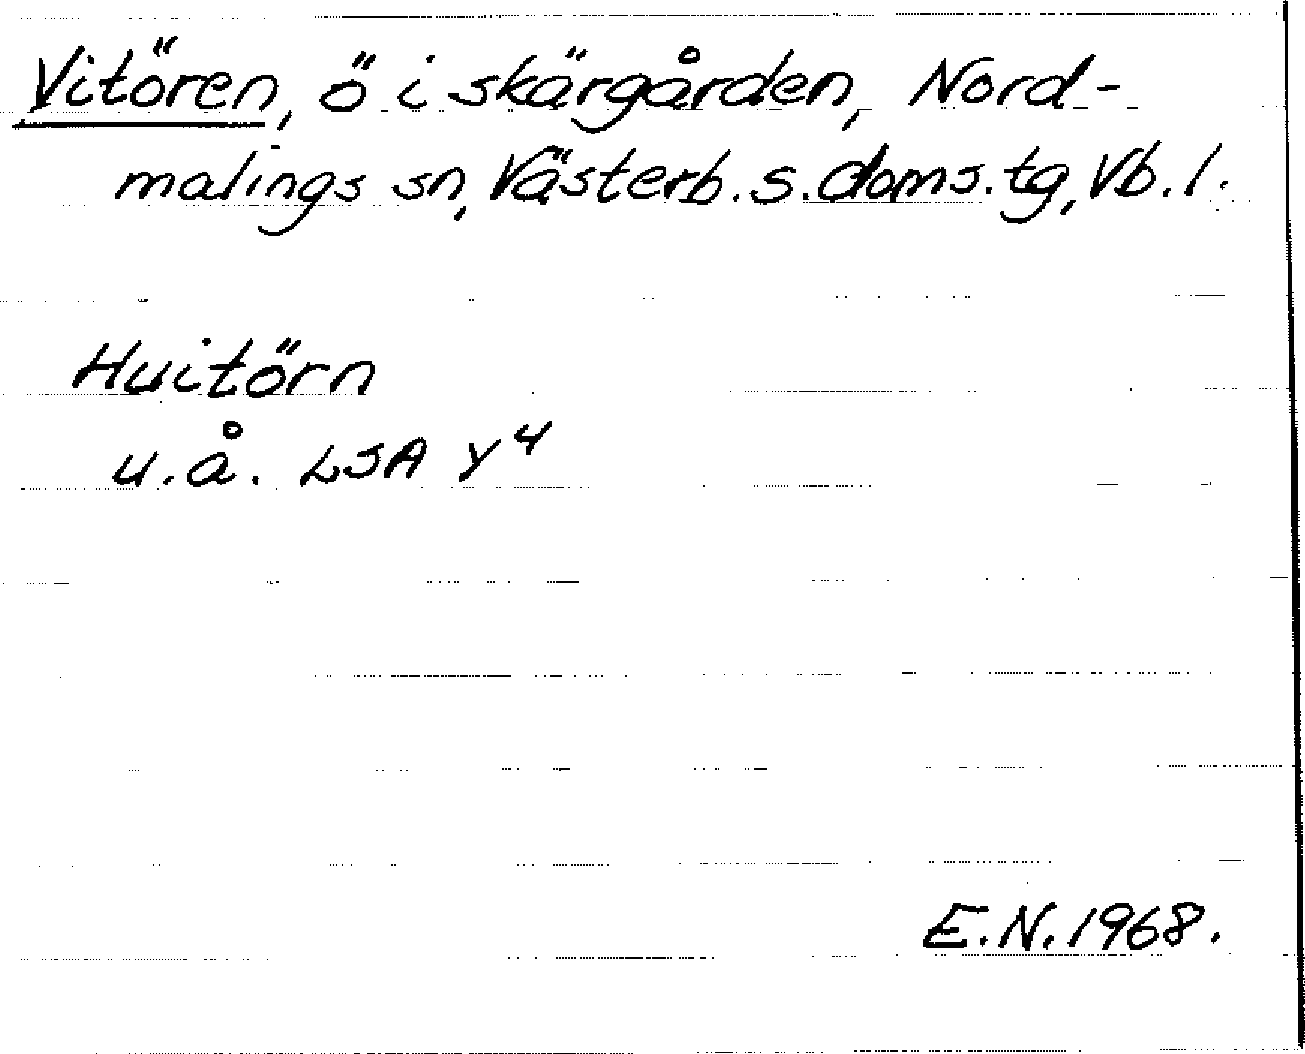 Vitören, ö i skärgården, Nord-
malings sn, Västerb. s. doms. tg, Vb. l.
Huitörn
u.å. LSA Y4
E.N. 1968.